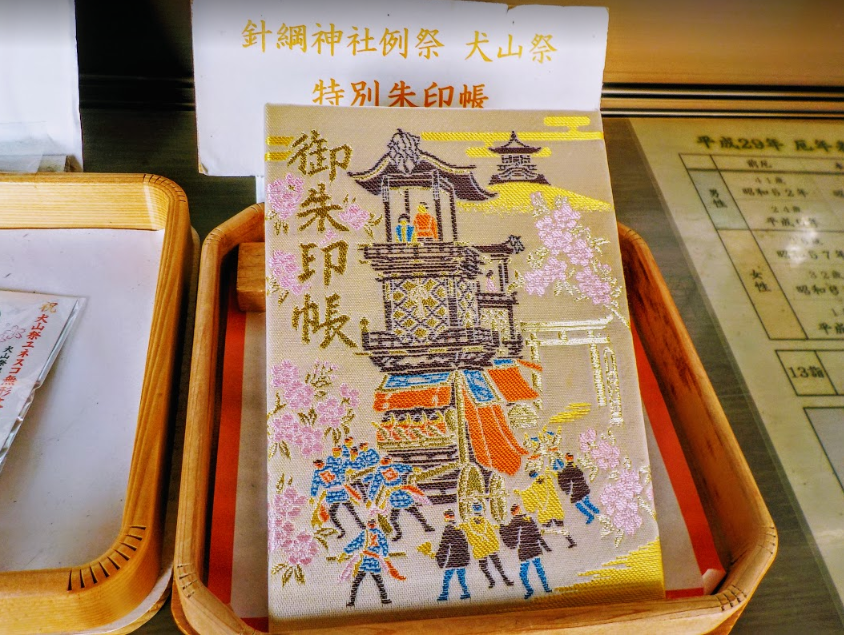 針綱神社例祭 犬山祭
特別朱印帳
御朱印帳
犬山祭ユネスコ無形文
平成29年 厄年
前厄
男性
41歳
昭和52年
24歳
平成
女性
32歳
昭和
13詣